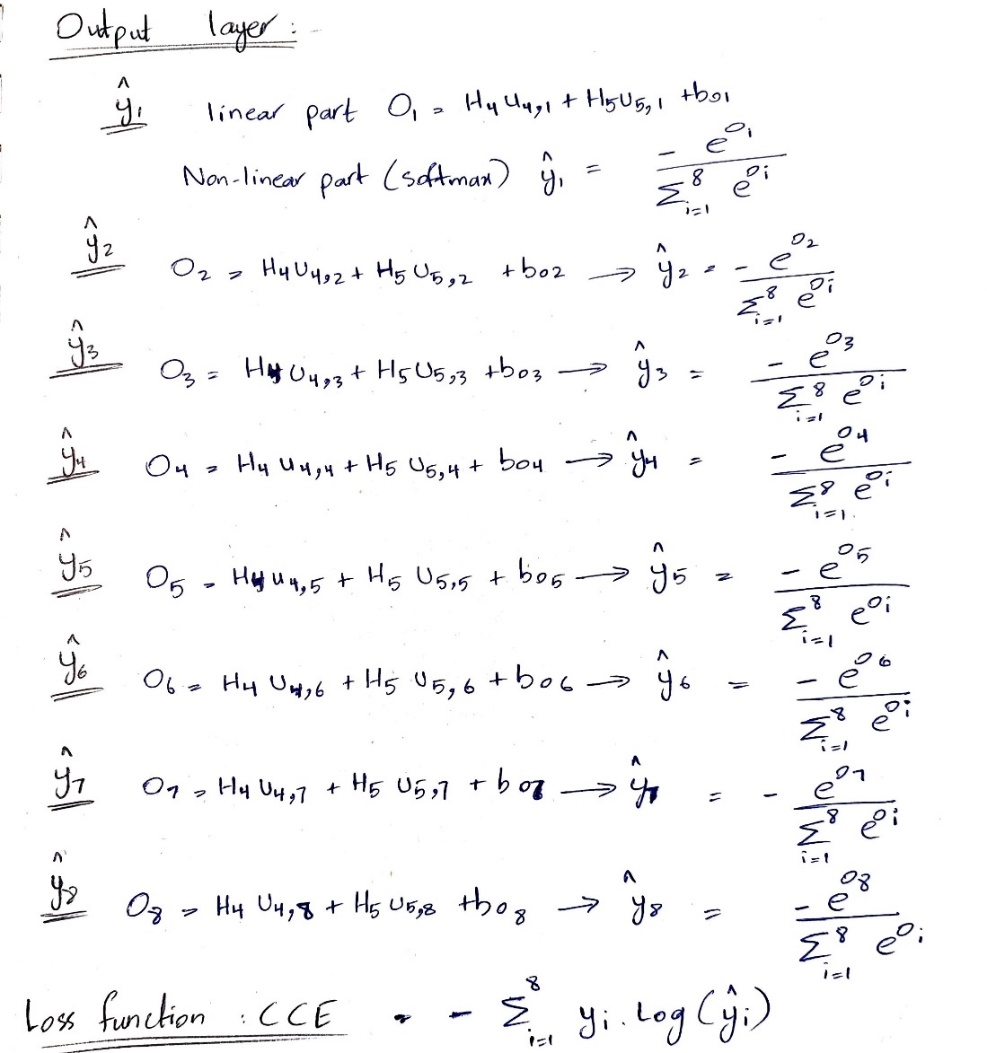 Output layer :-
ŷ₁ linear part O₁ = H₄U₄,₁ + H₅U₅,₁ + b₀₁
Non-linear part (softmax) ŷ₁ = - e^O₁ / Σ⁸ᵢ₌₁ e^Oᵢ
ŷ₂ O₂ = H₄U₄,₂ + H₅U₅,₂ + b₀₂ → ŷ₂ = - e^O₂ / Σ⁸ᵢ₌₁ e^Oᵢ
ŷ₃ O₃ = H₄U₄,₃ + H₅U₅,₃ + b₀₃ → ŷ₃ = - e^O₃ / Σ⁸ᵢ₌₁ e^Oᵢ
ŷ₄ O₄ = H₄U₄,₄ + H₅U₅,₄ + b₀₄ → ŷ₄ = - e^O₄ / Σ⁸ᵢ₌₁ e^Oᵢ
ŷ₅ O₅ = H₄U₄,₅ + H₅U₅,₅ + b₀₅ → ŷ₅ = - e^O₅ / Σ⁸ᵢ₌₁ e^Oᵢ
ŷ₆ O₆ = H₄U₄,₆ + H₅U₅,₆ + b₀₆ → ŷ₆ = - e^O₆ / Σ⁸ᵢ₌₁ e^Oᵢ
ŷ₇ O₇ = H₄U₄,₇ + H₅U₅,₇ + b₀₇ → ŷ₇ = - e^O₇ / Σ⁸ᵢ₌₁ e^Oᵢ
ŷ₈ O₈ = H₄U₄,₈ + H₅U₅,₈ + b₀₈ → ŷ₈ = - e^O₈ / Σ⁸ᵢ₌₁ e^Oᵢ
Loss function : CCE = - Σ⁸ᵢ₌₁ yᵢ . Log (ŷᵢ)